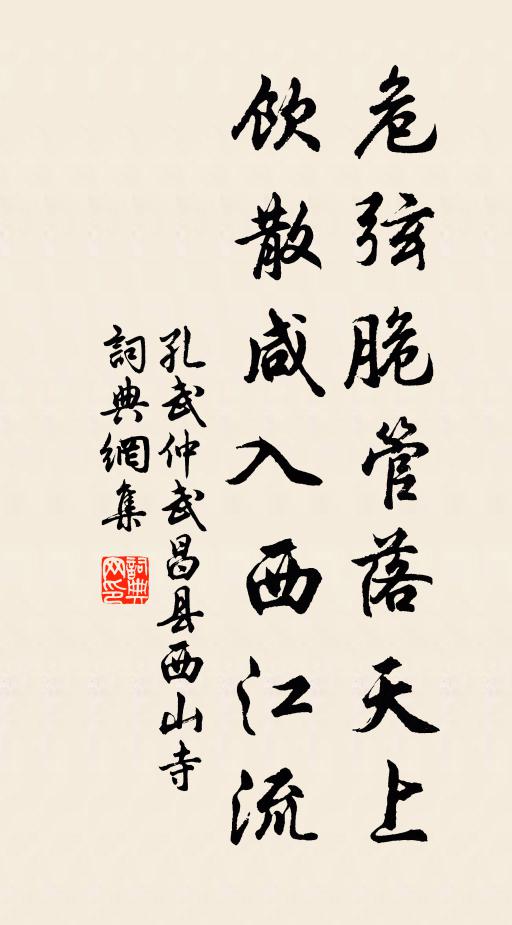 危弦脆管落天上
饮散咸入西江流
孔武仲武昌县西山寺
詞典網集
詞典网印